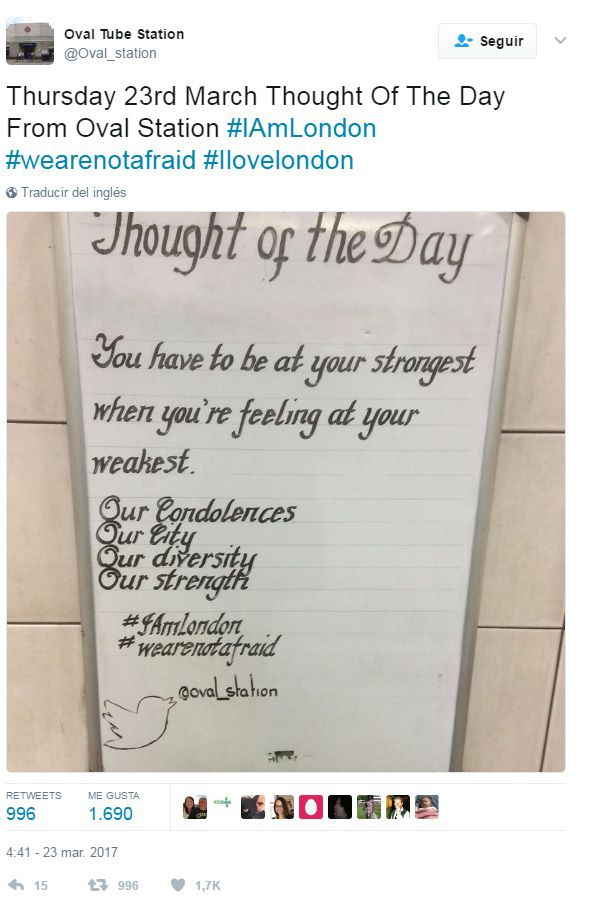 Oval Tube Station
@Oval_station
Seguir
Thursday 23rd March Thought Of The Day
From Oval Station #IAmLondon
#wearenotafraid #Ilovelondon
Traducir del inglés
Thought of the Day
You have to be at your strongest
when you're feeling at your
weakest.
Our Condolences
Our City
Our diversity
Our strength
#IAmLondon
#wearenotafraid
@oval_station
RETWEETS ME GUSTA
996 1.690
4:41 - 23 mar. 2017
15 996 1,7K